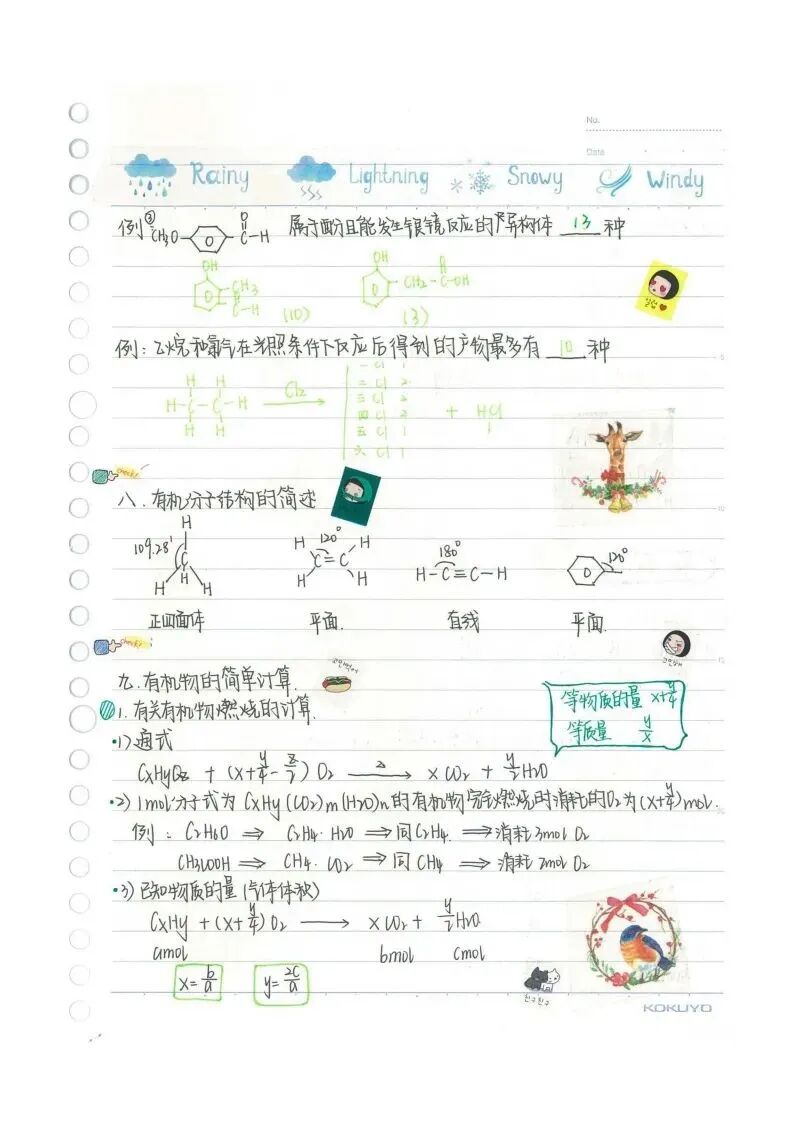 No.
Date
Rainy Lightning Snowy Windy
例② CH3O- -C-H 属于酚且能发生银镜反应的同分异构体 13 种
O
OH
CH3
C-H
(10)
OH
CH2-C-OH
(3)
例：乙烷和氯气在光照条件下反应后得到的产物最多有 10 种
H H
H-C-C-H
H H
Cl2
一 Cl 1
二 Cl 2
三 Cl 2
四 Cl 2
五 Cl 1
六 Cl 1
+ HCl
1
check!
八．有机分子结构的简述
109.28' H C H H H
120° H H C=C H H
180° H-C≡C-H
120°
正四面体 平面. 直线 平面.
check!
九．有机物的简单计算.
1．有关有机物燃烧的计算.
等物质的量 x+y/4
等质量 y/x
·1) 通式
CxHyOz + (x+y/4-z/2) O2 → xCO2 + y/2 H2O
·2) 1mol分子式为 CxHy(CO2)m(H2O)n 的有机物完全燃烧时消耗的O2为(x+y/4)mol.
例：C2H6O ⇒ C2H4·H2O ⇒ 同C2H4 ⇒ 消耗3mol O2
CH3COOH ⇒ CH4·CO2 ⇒ 同CH4 ⇒ 消耗2mol O2
·3) 已知物质的量(气体体积)
CxHy + (x+y/4) O2 → xCO2 + y/2 H2O
amol bmol cmol
x=b/a y=2c/a
친구친구
KOKUYO